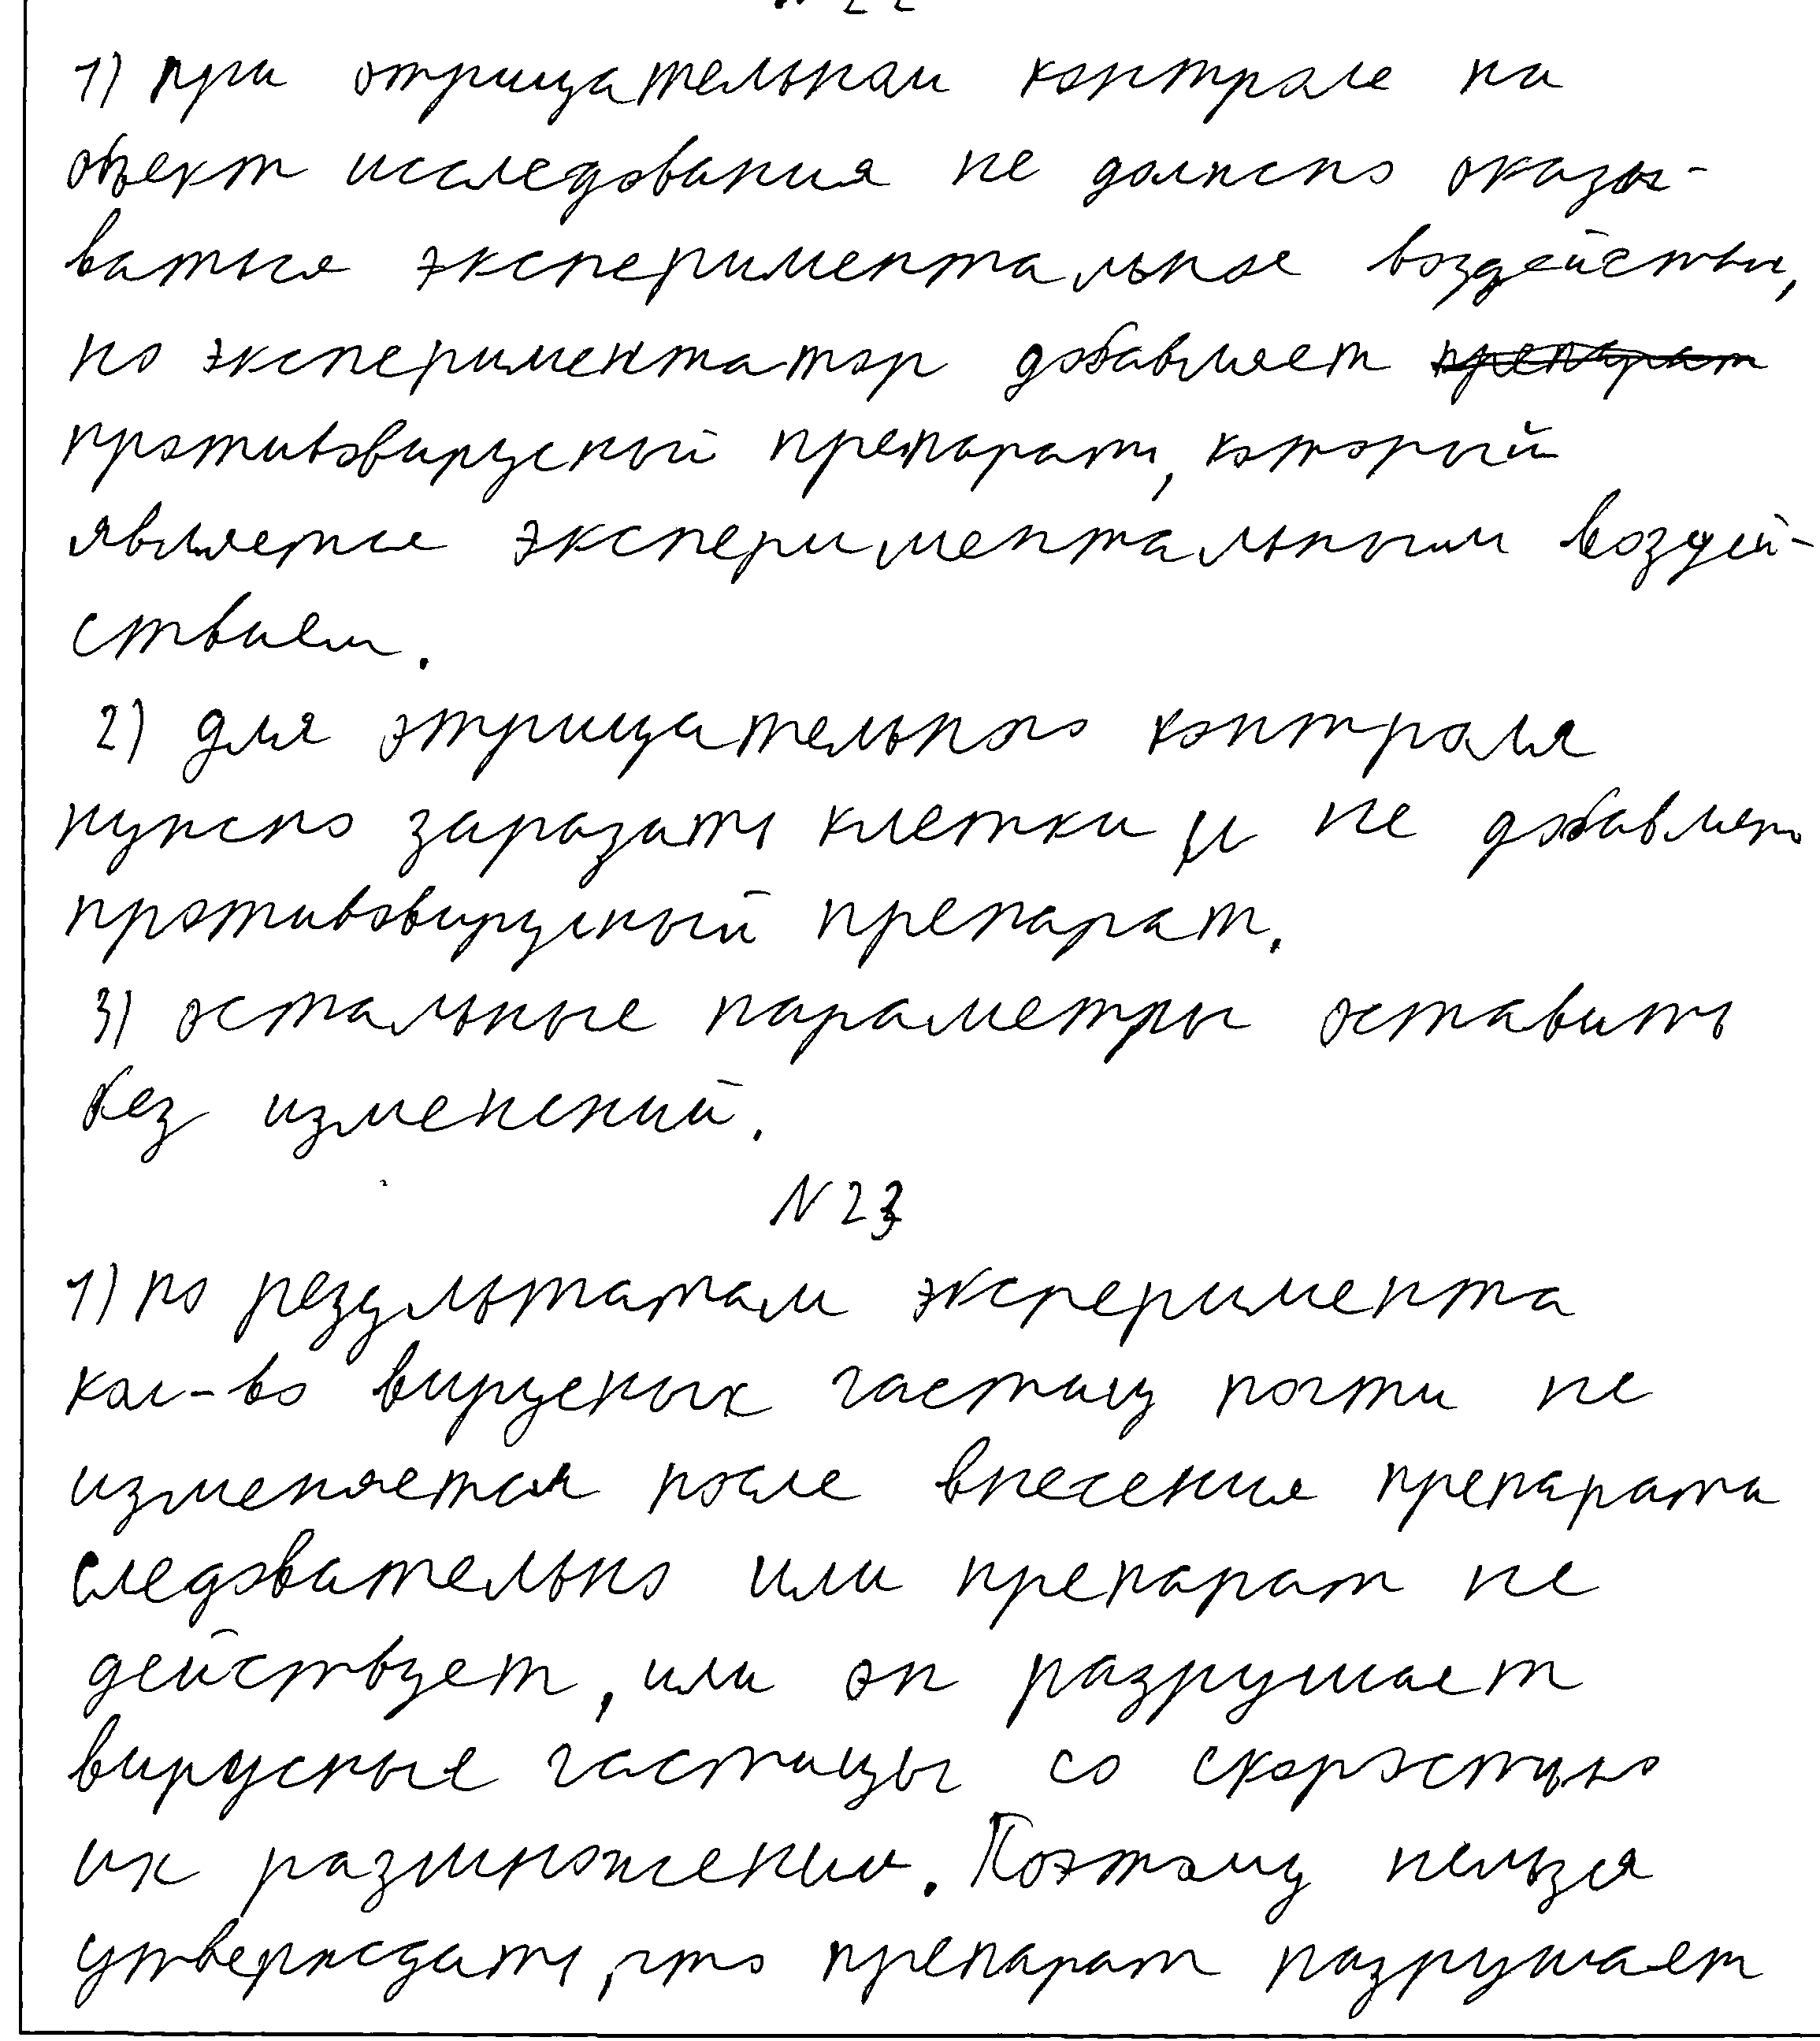 N 22
1) при отрицательном контроле на
объект исследования не должно оказы-
ваться экспериментальное воздействие,
но экспериментатор добавляет препарат
противовирусный препарат, который
является экспериментальным воздей-
ствием.
2) для отрицательного контроля
нужно заразить клетки и не добавлять
противовирусный препарат.
3) остальные параметры оставить
без изменений.
N 23
1) по результатам эксперимента
кол-во вирусных частиц почти не
изменяется после внесения препарата
следовательно или препарат не
действует, или он разрушает
вирусные частицы со скоростью
их размножения. Поэтому нельзя
утверждать, что препарат разрушает